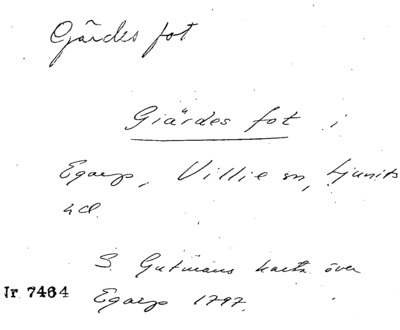 Gärdes fot
Giärdes fot i
Egarp, Villie sn, Ljunits
hd.
S. Gutmans karta över
Egarp 1797.
Nr 7464